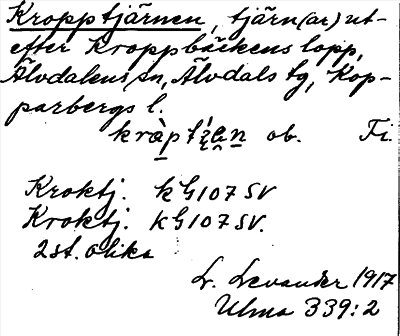 Kropptjärnen, tjärn(ar) ut-
efter Kroppbäckens lopp,
Älvdalens sn, Älvdals tg, Kop-
parbergs l.
ob. Fi.
Kroktj. k G107 SV
Kroktj. k G107 SV.
2 st. olika
L. Levander 1917
Ulma 339:2